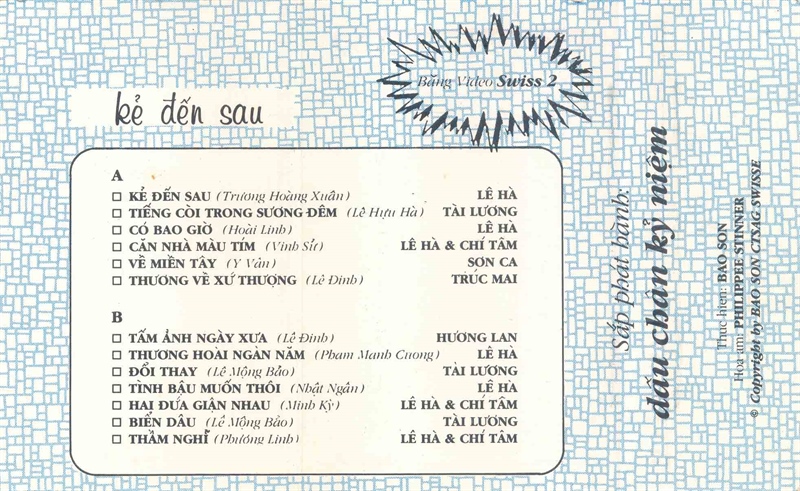 Băng Video Swiss 2
kẻ đến sau
A
KẺ ĐẾN SAU (Trương Hoàng Xuân) LÊ HÀ
TIẾNG CÒI TRONG SƯƠNG ĐÊM (Lê Hựu Hà) TÀI LƯƠNG
CÓ BAO GIỜ (Hoài Linh) LÊ HÀ
CĂN NHÀ MÀU TÍM (Vinh Sử) LÊ HÀ & CHÍ TÂM
VỀ MIỀN TÂY (Y Vân) SƠN CA
THƯƠNG VỀ XỨ THƯỢNG (Lê Dinh) TRÚC MAI
B
TẤM ẢNH NGÀY XƯA (Lê Dinh) HƯƠNG LAN
THƯƠNG HOÀI NGÀN NĂM (Pham Manh Cuong) LÊ HÀ
ĐỔI THAY (Lê Mộng Bảo) TÀI LƯƠNG
TÌNH BẬU MUỐN THÔI (Nhật Ngân) LÊ HÀ
HAI ĐỨA GIẬN NHAU (Minh Kỳ) LÊ HÀ & CHÍ TÂM
BIỂN DÂU (Lê Mộng Bảo) TÀI LƯƠNG
THẦM NGHĨ (Phương Linh) LÊ HÀ & CHÍ TÂM
Sắp phát hành:
dấu chân kỷ niệm
Thuc hien: BAO SON
Hoa am: PHILIPPEE STINNER
© Copyright by BAO SON CTSAG SWISSE